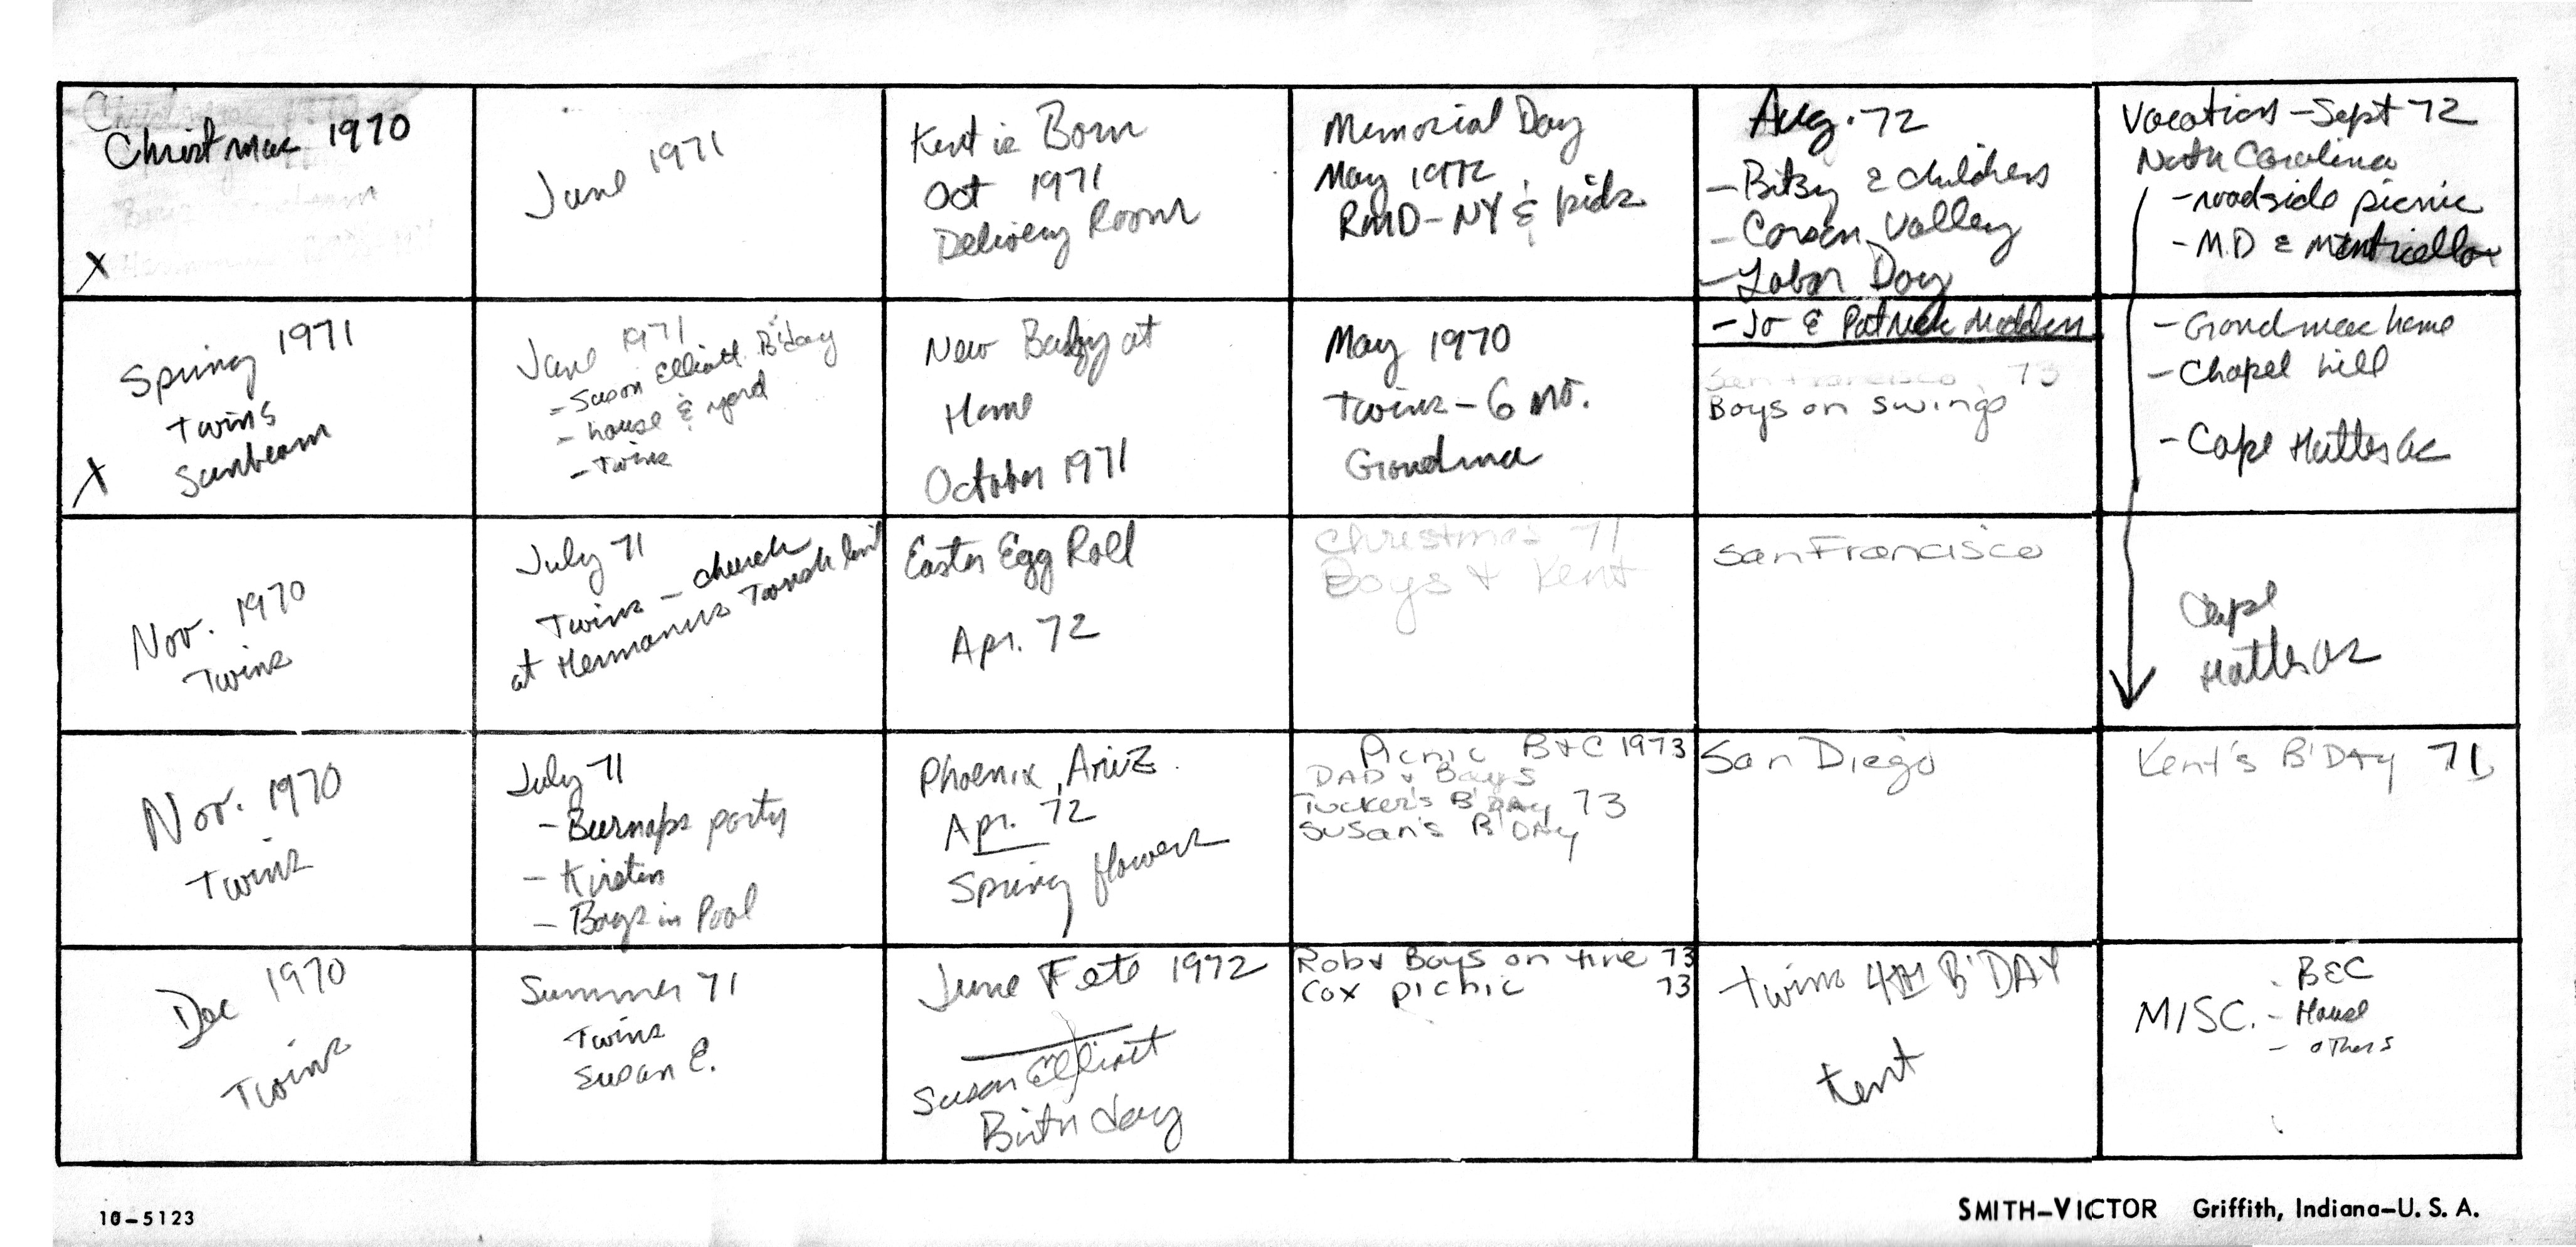 Christmas 1970
X
June 1971
Kent is Born
Oct 1971
Delivery Room
Memorial Day
May 1972
RMD-NY & kids
Aug. 72
- Bitsy & childrens
- Carson Valley
- Labor Day
Vacation - Sept 72
North Carolina
- roadside picnic
- M.D & Monticello
Spring 1971
Twins
Sunbeam
X
June 1971
- Susan Elliott B'day
- house & yard
- Twins
New Baby at
Home
October 1971
May 1970
Twins - 6 mo.
Grandma
- Jo & Patrick Madden
San Francisco, 73
Boys on swings
- Grandmas home
- Chapel hill
- Cape Hatteras
Nov. 1970
Twins
July 71
Twins - church
at Hermanus
Easter Egg Roll
Apr. 72
Christmas 71
Boys + Kent
San Francisco
Cape
Hatteras
Nov. 1970
Twins
July 71
- Burnaps party
- Kirsten
- Boys in Pool
Phoenix, Ariz.
Apr. 72
Spring flowers
Picnic B+C 1973
DAD + Boys
Tucker's B'DAY 73
Susan's B'DAY
San Diego
Kent's B'DAY 71
Dec 1970
Twins
Summer 71
Twins
Susan E.
June Fete 1972
Susan Elliott
Birthday
Rob + Boys on tire 73
Cox picnic 73
Twins 4th B'DAY
Kent
MISC. - B&C
- House
- others
10-5123
SMITH-VICTOR Griffith, Indiana-U. S. A.